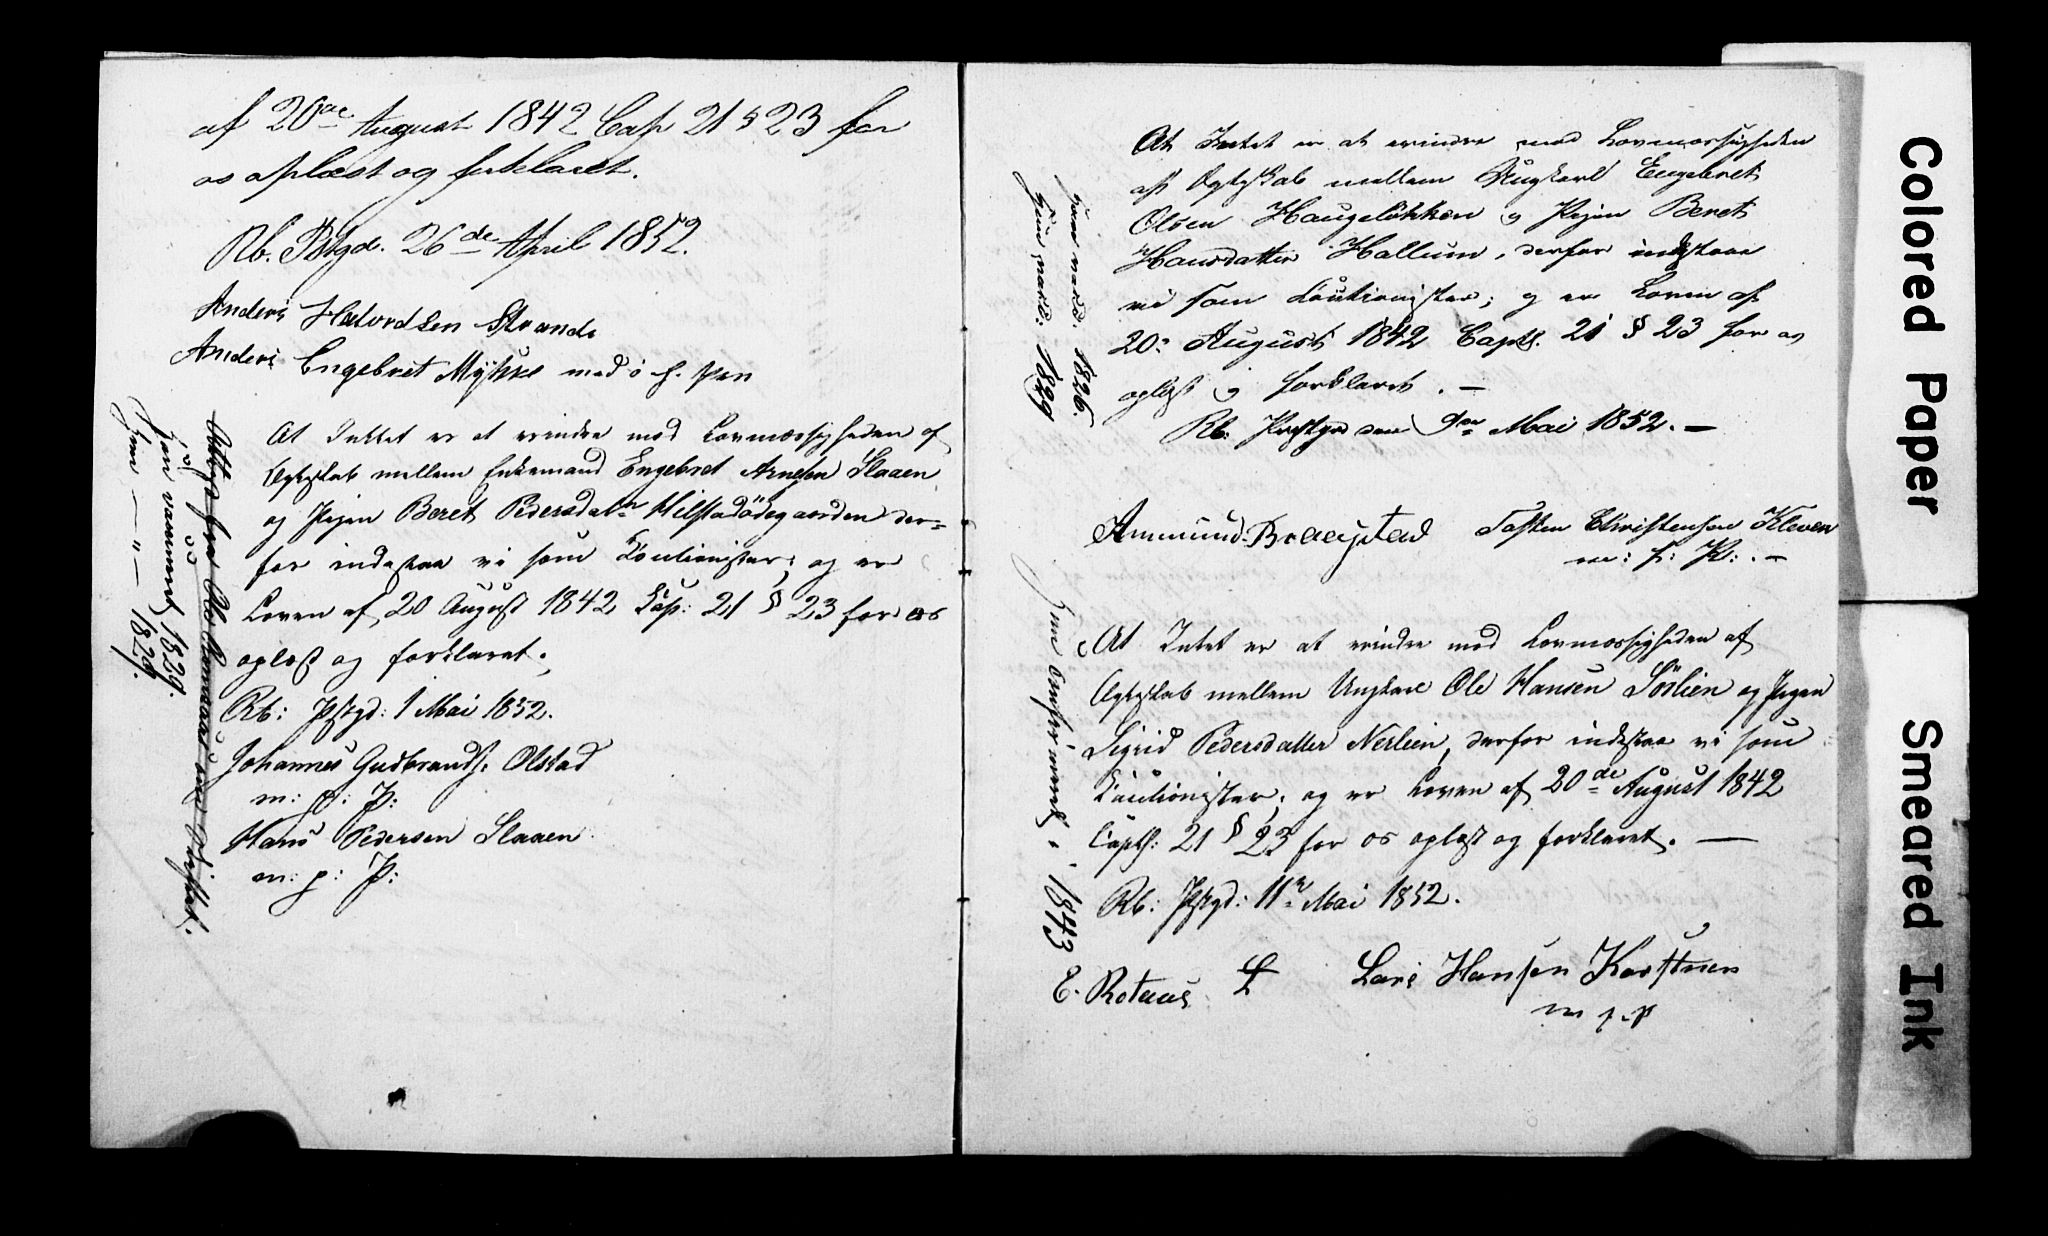 af 20de August 1842 Cap 21 § 23 for
os oplæst og forklaret.
Rb. Pstgd. 26de April 1852.
Anders Halvordsen Strande
Anders Engebret Mykke med i h. Pen
At Inttet er at erindre mod Lovmæssigheden af
Ægteskab mellem Enkemand Engebret Arnesen Slaaen
og Pigen Beret Pedersdatr Hilstadödegaarden der=
for indestaa vi som Cautionister; og er
Loven af 20 August 1842 Cap: 21 § 23 for os
oplæst og forklaret.
Rb: Pstgd: 1 Mai 1852.
Johannes Gudbrands. Olstad
m: p: P:
Hans Pedersen Slaaen
m: p: P:
han vaccineret 1829.
Hun — " — 1829.
At Intet er at erindre mod Lovmæssigheden
af Ægteskab mellem Ungkarl Engebret
Olsen Haugelökken og Pigen Beret
Hansdatter Hallum, derfor indestaae
vi som Cautionister; og er Loven af
20: August 1842 Capt. 21 § 23 for os
oplæst og forklaret. —
Rb. Prstgd den 9de Mai 1852. —
ham vacc. 1826.
Hun vacc: 1829
Ammund Braastad Torsten Christensen Kleven
m: f: P: . —
At Intet er at erindre mod Lovmæssigheden af
Ægteskab mellem Ungkarl Ole Hansen Sörlien og Pigen
Sigrid Pedersdatter Nerlien, derfor indestaa vi som
Cautionister; og er Loven af 20de August 1842
Capt: 21 § 23 for os oplæst og forklaret. —
Rb: Pstgd: 11te Mai 1852.
Hun Confirmert 1843
E. Rotaus Lars Hansen
m f. P
Colored Paper
Smeared Ink